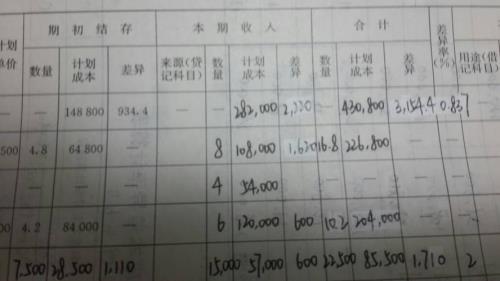 期初结存 本期收入 合计 差异率(%)
计划单价 数量 计划成本 差异 来源(贷记科目) 数量 计划成本 差异 数量 计划成本 差异 用途(借记科目)
— — 148 800 934.4 — — 282,000 2,220 — 430,800 3,154.4 0.837
500 4.8 64 800 — 8 108,000 1,620 16.8 226,800 — —
— — — — 4 54,000 — — — — —
00 4.2 84 000 — 6 120,000 600 10.2 204,000 — —
7.500 28,500 1.110 15,000 57,000 600 22500 85,500 1.710 2